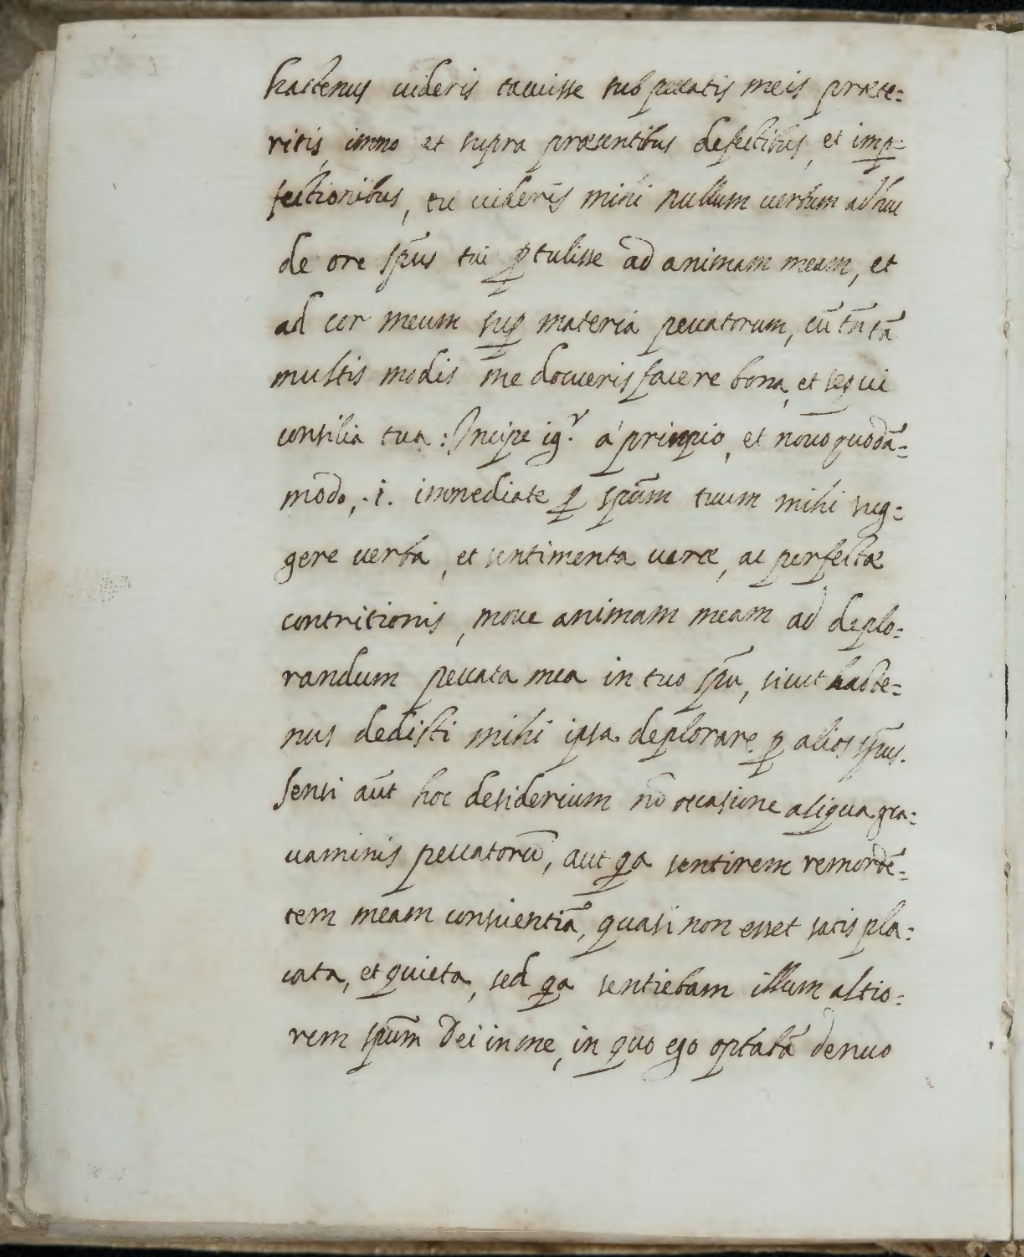 hactenus uideris tacuisse sub peccatis meis præte=
ritis, immo et supra præsentibus defectibus, et imp̱=
fectionibus, tu uideris mihi nullum uerbum adhuc
de ore sp̄us tui ꝑtulisse ad animam meam, et
ad cor meum sup̱ materia peccatorum, cū tn̄ tā
multis modis me docueris facere bona, et sequi
consilia tua: Incipe ig.r à prinpio, et nouo quodā=
modo, .i. immediate ꝑ sp̄um tuum mihi sug=
gere uerba, et sentimenta ueræ, ac perfectæ
contritionis, moue animam meam ad deplo=
randum peccata mea in tuo sp̄u, sicut hacte=
nus dedisti mihi ipsa deplorare ꝑ alios sp̄us.
Sensi aūt hoc desiderium nō occasione aliqua gra=
uaminis peccatorū, aut qa sentirem remordē=
tem meam conscientiā, quasi non esset satis pla=
cata, et quieta, sed qa sentiebam illum altio=
rem sp̄um Dei in me, in quo ego optabā denuo